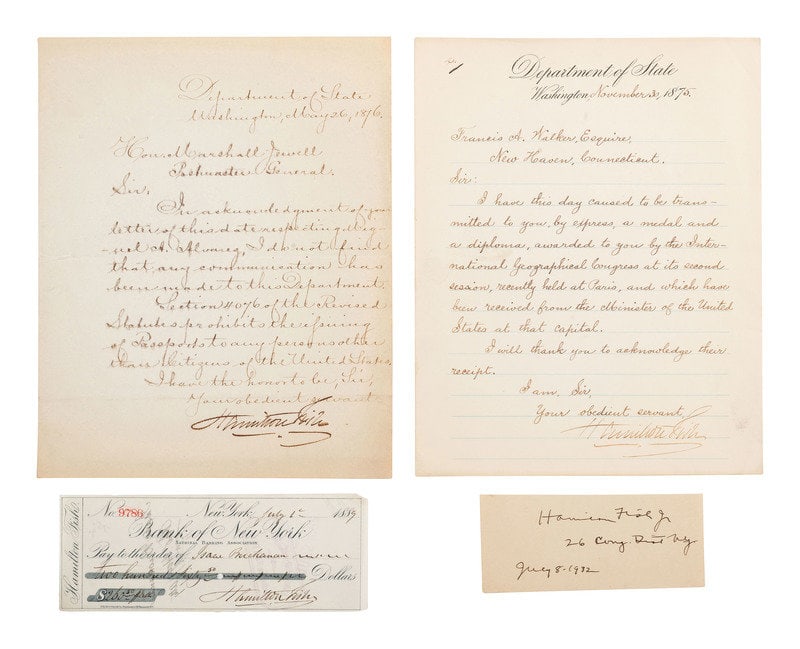 Department of State
Washington, May 26, 1876.
Hon. Marshall Jewell
Postmaster General.
Sir.
In acknowledgment of your
letter of this date respecting Mig-
uel A. Alvarez, I do not find
that any communication has
been made to this Department.
Section 4076 of the Revised
Statutes prohibits the issuing
of Passports to any persons other
than Citizens of the United States.
I have the honor to be, Sir,
Your obedient servant
Hamilton Fish
Department of State
Washington, November 30, 1875.
Francis A. Walker, Esquire,
New Haven, Connecticut.
Sir:
I have this day caused to be trans-
mitted to you, by express, a medal and
a diploma, awarded to you by the Inter-
national Geographical Congress at its second
session, recently held at Paris, and which have
been received from the Minister of the United
States at that capital.
I will thank you to acknowledge their
receipt.
I am, Sir,
Your obedient servant,
Hamilton Fish
Hamilton Fish
No. 9786 New York, July 1st 1889
Bank of New York
NATIONAL BANKING ASSOCIATION
Pay to the order of Isaac Buchanan
Two hundred sixty Dollars
Hamilton Fish
Hamilton Fish Jr
26 Cong. Dist Ny
July 8-1932